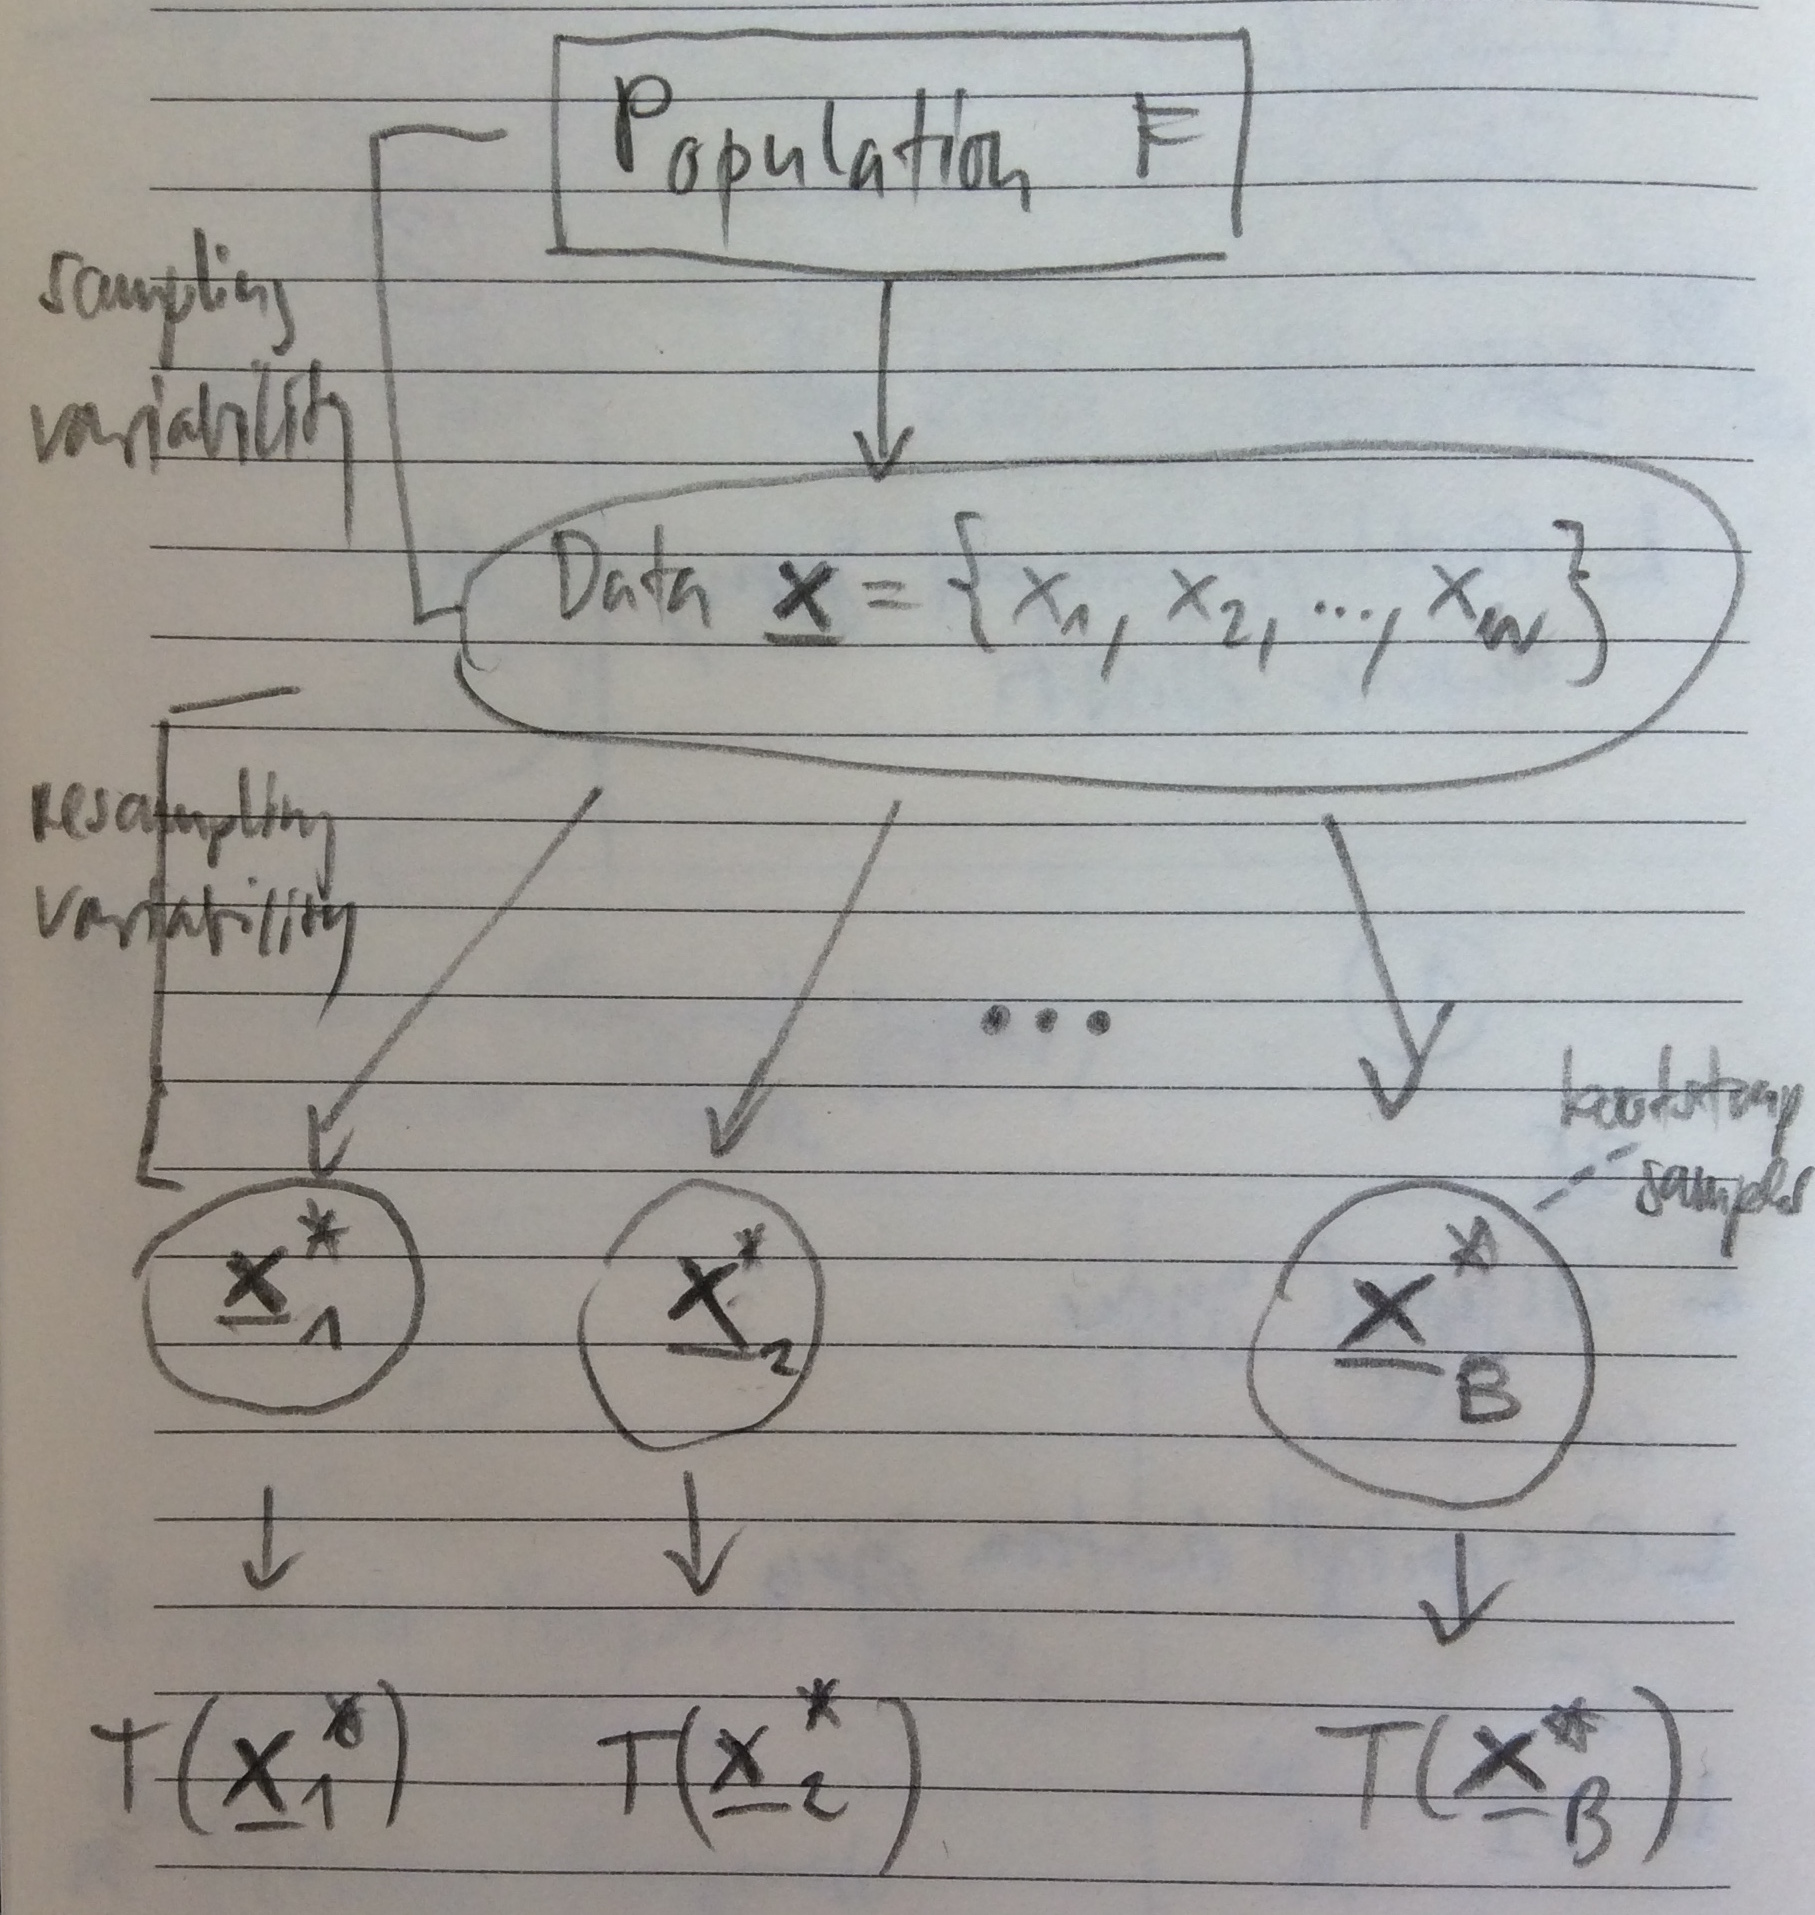 Population F
sampling
variability
Data x = {x1, x2, ..., xn}
resampling
variability
...
bootstrap
samples
x*1 x*2 x*B
T(x*1) T(x*2) T(x*B)